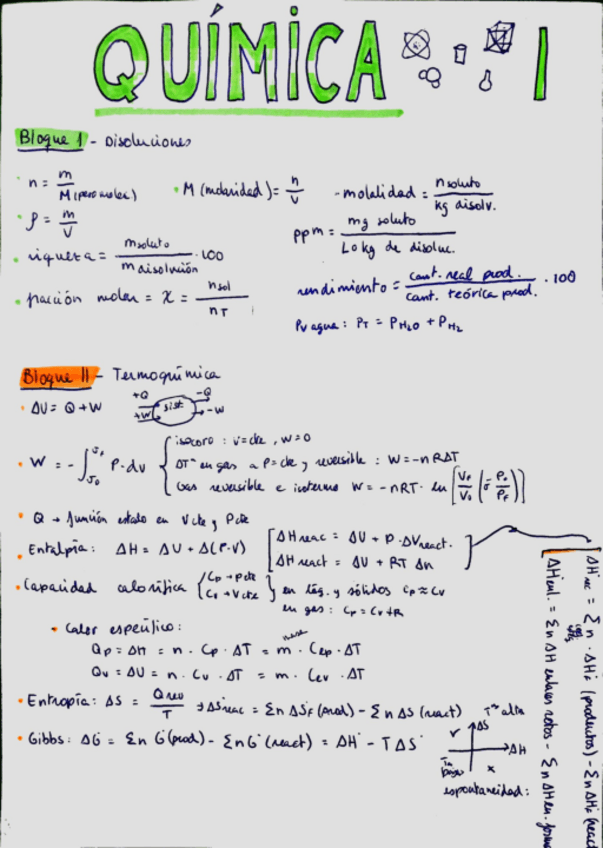 QUÍMICA I
Bloque I - Disoluciones
n = m / M (peso molec)
• M (molaridad) = n / V
- molalidad = n soluto / kg disolv.
• ρ = m / V
ppm = mg soluto / 1.0 kg de disoluc.
• riqueza = m soluto / m disolución · 100
rendimiento = cant. real prod. / cant. teórica prod. · 100
• fracción molar = X = n sol / n T
Pv agua: P_T = P_H2O + P_H2
Bloque II - Termoquímica
• ΔU = Q + W
+Q -Q
sist.
+W -W
• W = - ∫ P · dv
isocoro: v = cte, w = 0
ΔTª en gas a P = cte y reversible: W = -nRΔT
Gas reversible e isotermo W = -nRT · ln [V_F / V_0 (ó P_0 / P_F)]
• Q → función estado en Vcte y Pcte
• Entalpía: ΔH = ΔU + Δ(P·V)
ΔH reac = ΔU + P · ΔV react.
ΔH react = ΔU + RT Δn
• Capacidad calorífica
Cp → Pcte
Cv → Vcte
en líq. y sólidos Cp ≈ Cv
en gas: Cp = Cv + R
• Calor específico:
masa
Qp = ΔH = n · Cp · ΔT = m · Cep · ΔT
Qv = ΔU = n · Cv · ΔT = m · Cev · ΔT
• Entropía: ΔS = Q rev / T → ΔS°reac = Σn ΔS°f (prod) - Σ n ΔS (react)
• Gibbs: ΔG° = Σn G°(prod) - Σ n G°(react) = ΔH° - TΔS°
Tª alta
ΔS
ΔH
Tª baja
espontaneidad:
ΔH°rec = Σ n · ΔH°f (productos) - Σ n ΔH°f (react
ΔH enl. = Σ n ΔH enlaces rotos - Σ n ΔH en. form